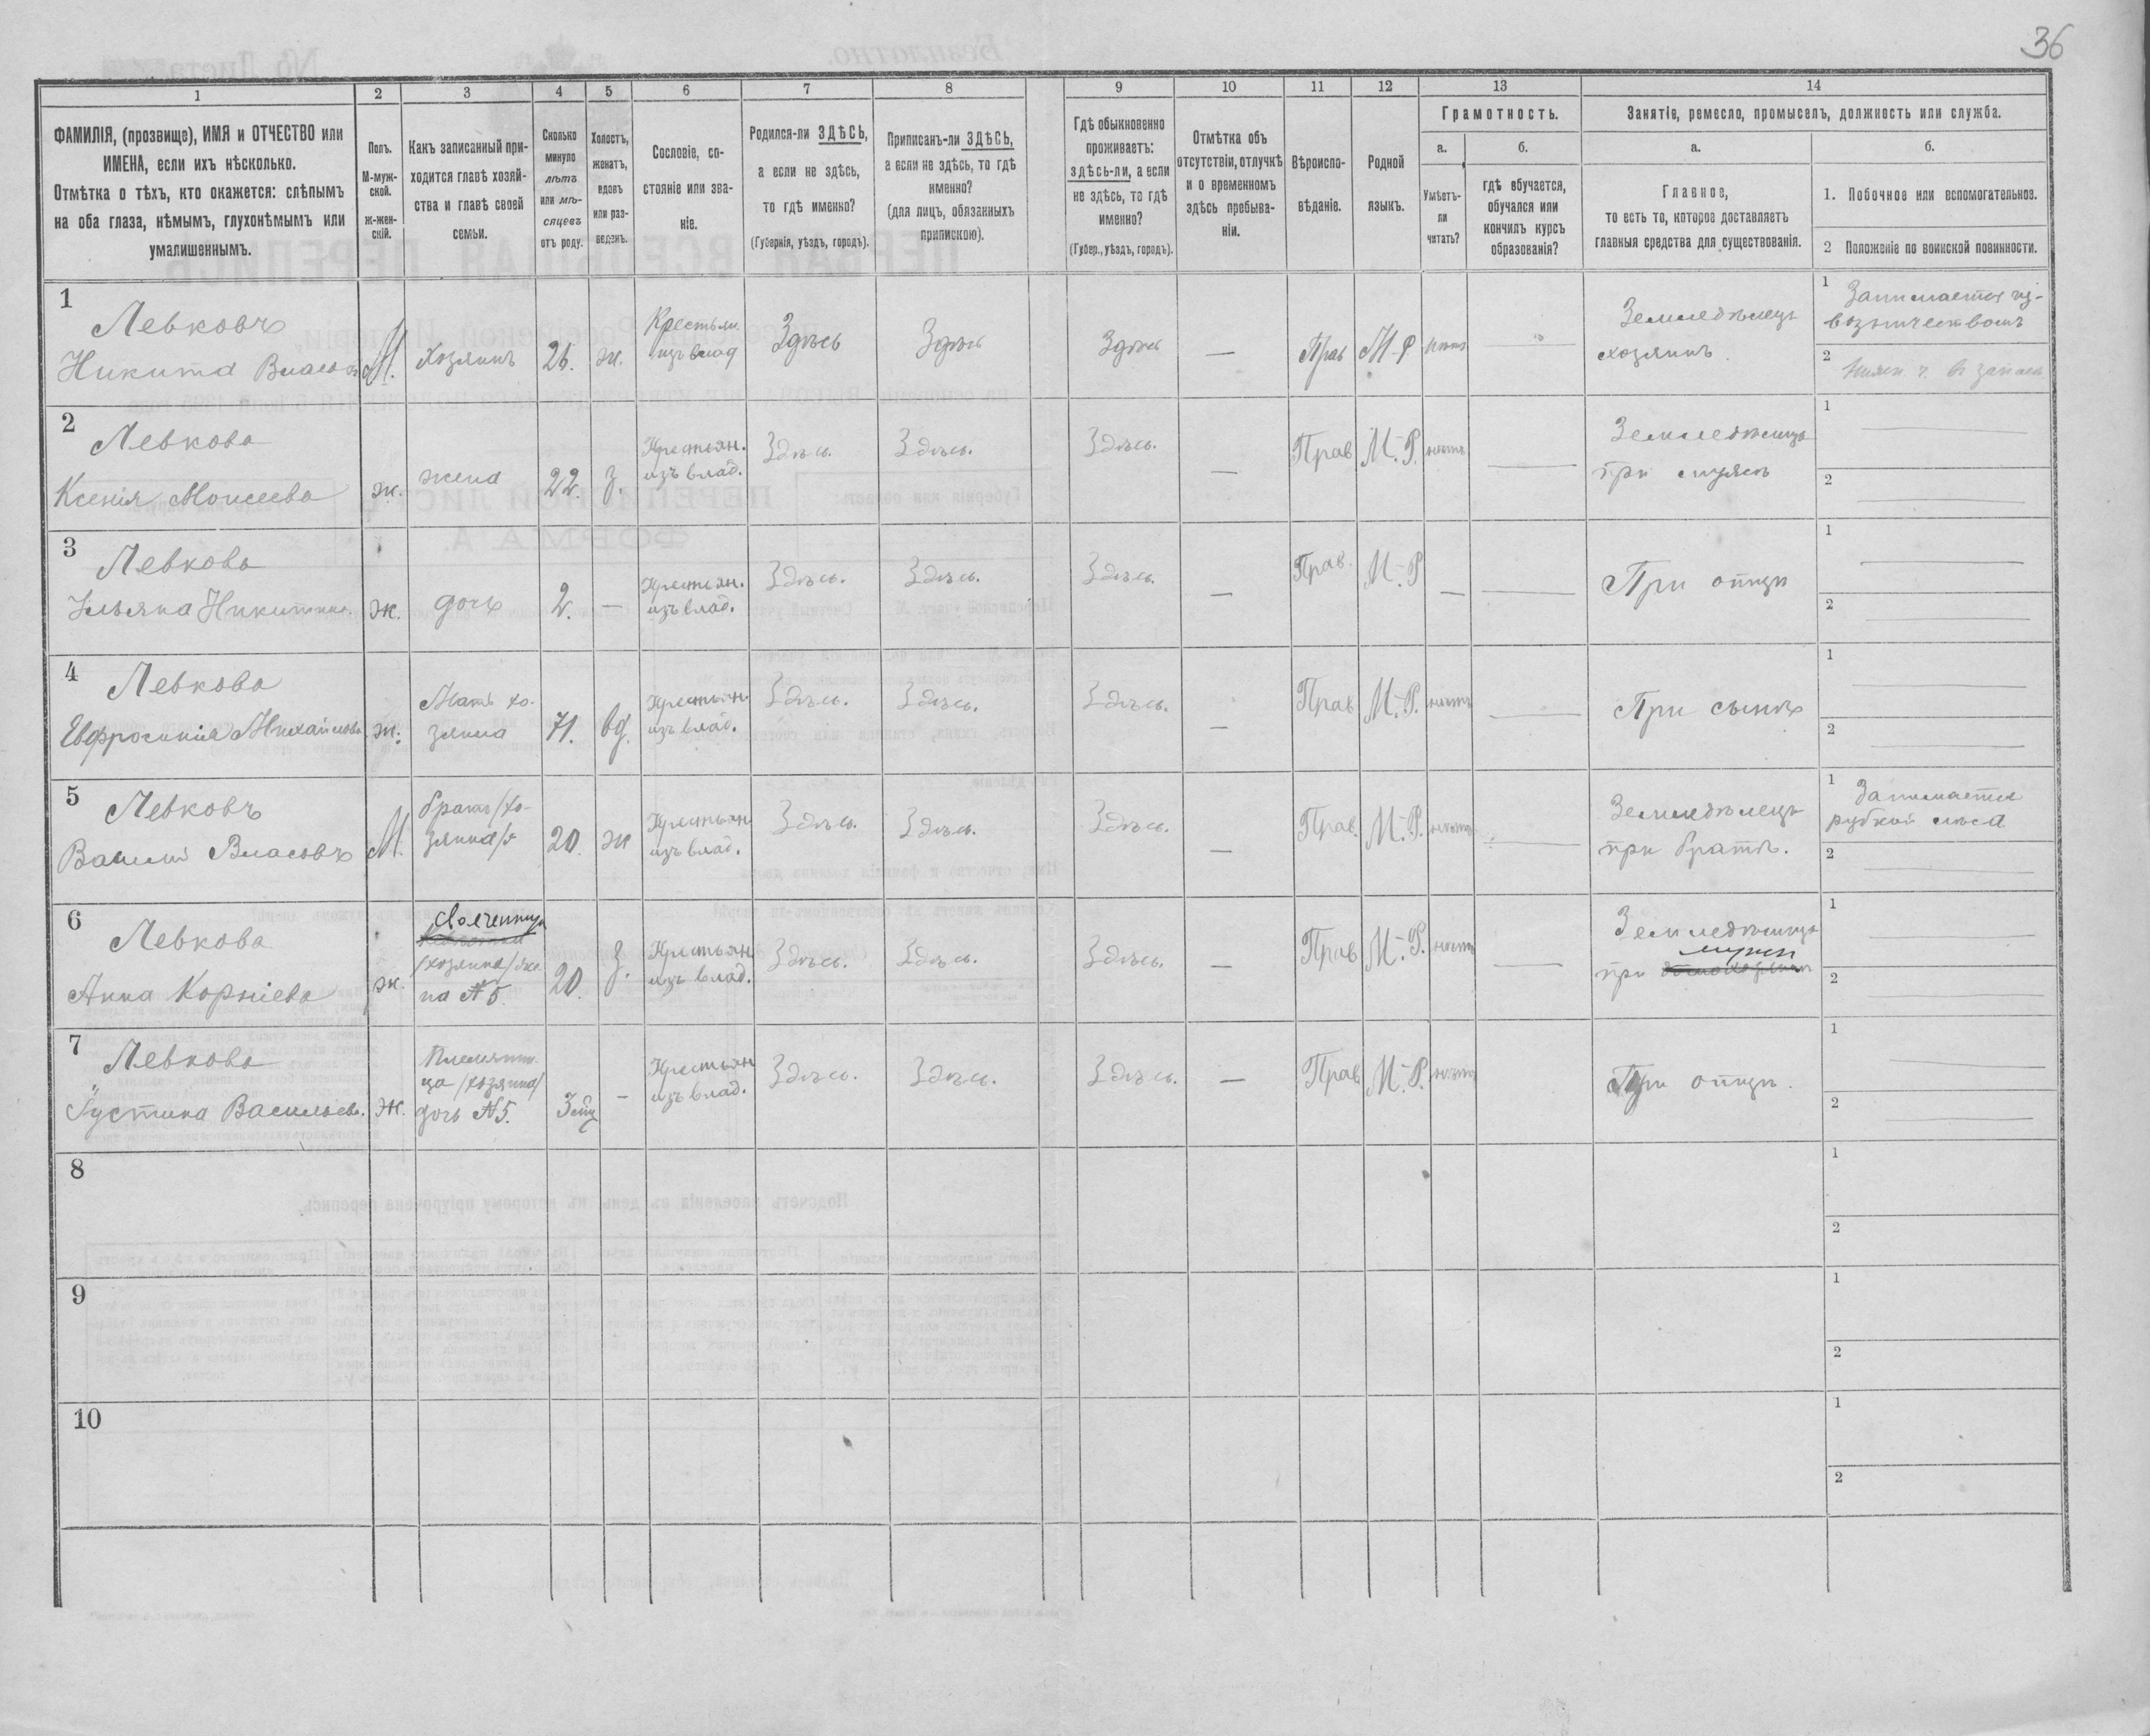 36
1 2 3 4 5 6 7 8 9 10 11 12 13 14
ФАМИЛІЯ, (прозвище), ИМЯ и ОТЧЕСТВО или
ИМЕНА, если ихъ нѣсколько.
Отмѣтка о тѣхъ, кто окажется: слѣпымъ
на оба глаза, нѣмымъ, глухонѣмымъ или
умалишеннымъ.
Полъ.
М-муж-
ской.
ж-жен-
скій.
Какъ записанный при-
ходится главѣ хозяй-
ства и главѣ своей
семьи.
Сколько
минуло
лѣтъ
или мѣ-
сяцевъ
отъ роду.
Холостъ,
женатъ,
вдовъ
или раз-
веденъ.
Сословіе, со-
стояніе или зва-
ніе.
Родился-ли ЗДѢСЬ,
а если не здѣсь,
то гдѣ именно?
(Губернія, уѣздъ, городъ).
Приписанъ-ли ЗДѢСЬ,
а если не здѣсь, то гдѣ
именно?
(для лицъ, обязанныхъ
припискою).
Гдѣ обыкновенно
проживаетъ:
здѣсь-ли, а если
не здѣсь, то гдѣ
именно?
(Губер., уѣздъ, городъ).
Отмѣтка объ
отсутствіи, отлучкѣ
и о временномъ
здѣсь пребыва-
ніи.
Вѣроиспо-
вѣданіе.
Родной
языкъ.
Грамотность.
а.
Умѣетъ-
ли
читать?
б.
гдѣ обучается,
обучался или
кончилъ курсъ
образованія?
Занятіе, ремесло, промыселъ, должность или служба.
а.
Главное,
то есть то, которое доставляетъ
главныя средства для существованія.
б.
1. Побочное или вспомогательное.
2 Положеніе по воинской повинности.
1
Левковъ
Никита Власовъ
М.
хозяинъ
26.
ж.
Крестьян.
изъ влад
Здѣсь
Здѣсь
Здѣсь
—
Прав
М-Р
нѣтъ
Земледѣлецъ
хозяинъ.
1 Занимается из-
возничествомъ
2 Нижн. ч. въ запасѣ
2
Левкова
Ксенія Моисеева
ж.
жена
22.
з.
Крестьян.
изъ влад.
Здѣсь.
Здѣсь.
Здѣсь.
—
Прав
М.-Р.
нѣтъ
—
Земледѣлица
при мужѣ
1
2
3
Левкова
Ульяна Никитина.
ж.
дочь
2.
—
Крестьян.
изъ влад.
Здѣсь.
Здѣсь.
Здѣсь.
—
Прав.
М.-Р
—
—
При отцѣ
1
2
4
Левкова
Евфросинія Михайлова
ж.
Мать хо-
зяина
71.
вд.
Крестьян.
изъ влад.
Здѣсь.
Здѣсь.
Здѣсь.
—
Прав
М.-Р.
нѣтъ
—
При сынѣ
1
2
5
Левковъ
Василій Власовъ
М.
братъ /хо-
зяина/
20.
ж
Крестьян
изъ влад.
Здѣсь.
Здѣсь.
Здѣсь.
—
Прав.
М.-Р.
нѣтъ
—
Земледѣлецъ
при братѣ.
1 Занимается
рубкой лѣса
2
6
Левкова
Анна Корніева
ж.
своячинница
/хозяина/ же-
на №5.
20.
з.
Крестьян
изъ влад.
Здѣсь.
Здѣсь.
Здѣсь.
—
Прав
М.-Р.
нѣтъ
—
Земледѣлица
мужѣ
при
1
2
7
Левкова
Густина Васильева.
ж.
Племянни-
ца /хозяина/
дочь №5.
3 мѣц
—
Крестьян
изъ влад.
Здѣсь.
Здѣсь.
Здѣсь.
—
Прав
М.-Р.
нѣтъ
При отцѣ.
1
2
8
1
2
9
1
2
10
1
2